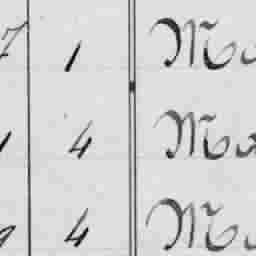 7 1 Ma
1 4 Ma
9 4 Ma